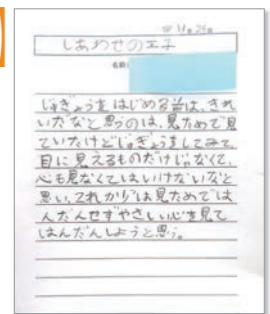 11月29日
しあわせの王子
名前
じゅぎょうをはじめる前は、きれ
いだなと思うのは、見ためで見
ていたけどじゅぎょうをしてみて、
目に見えるものだけじゃなくて、
心も見なくてはいけないなと
思い、これからは見ためでは
んだんせずやさしい心を見て
はんだんしようと思う。